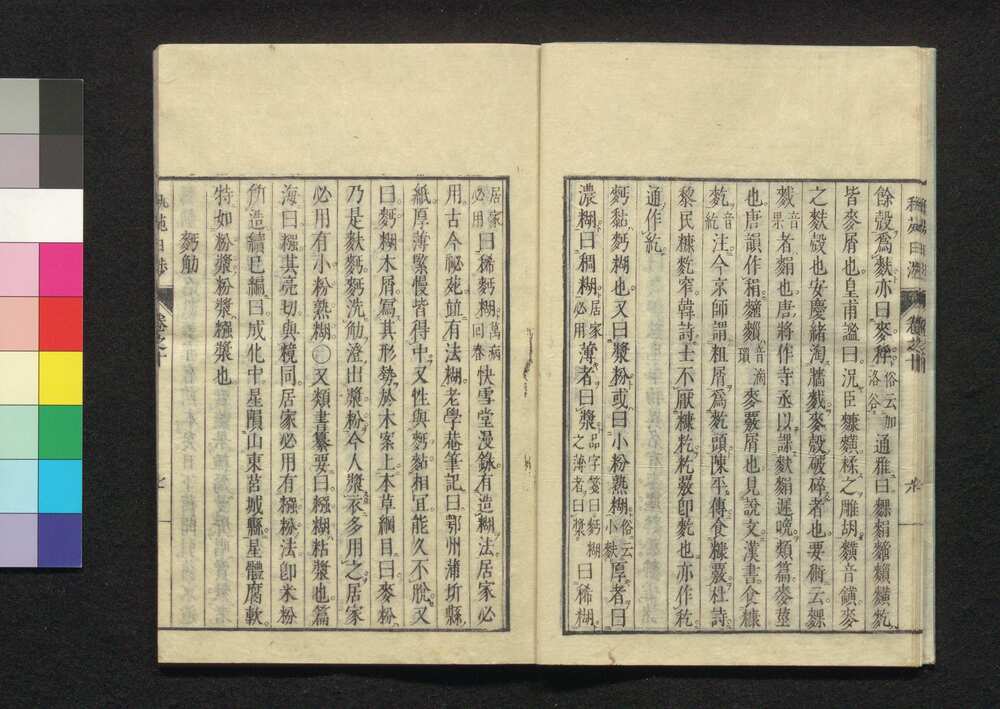 餘殼爲麩亦曰麥稃俗云加洛谷通雅曰䴹䅌䴷䵆䵃麧
皆麥屑也皇甫謐曰況臣糠䵃糅之雕胡䵃音鑛麥
之麩殼也安慶緒淘牆䴬麥殼破碎者也要術云䴹
䴬音果者䅌也唐將作寺丞以課䴬䅌遲晚類篇麥莖
也唐韻作䅌麥覈屑也見說文漢書食糠
麧音紇注今京師謂粗屑爲麧頭陳平傳食糠覈杜詩
黎民糠籺窄韓詩士不厭糠籺籺覈卽麧也亦作籺
通作紇
麪黏麪糊也又曰漿粉或曰小粉熟糊俗云小麩厚者曰
濃糊曰稠糊居家必用薄者曰漿品字箋曰麪糊之薄者曰漿曰稀糊
居家必用曰稀麪糊萬病回春快雪堂漫錄有造糊法居家必
用古今祕苑竝有法糊老學菴筆記曰鄂州蒲圻縣
紙厚薄緊慢皆得中又性與麪黏相宜能久不脫又
曰麪糊木屑寫其形勢於木案上本草綱目曰麥粉
乃是麩麪麪洗觔澄出漿粉今人漿衣多用之居家
必用有小粉熟糊〇又類書纂要曰糨糊粘漿也篇
海曰糨其亮切與糡同居家必用有糨粉法卽米粉
所造續巳編曰成化中星隕山東莒城縣星體腐軟
特如粉漿粉漿糨漿也
麪觔
卷之十